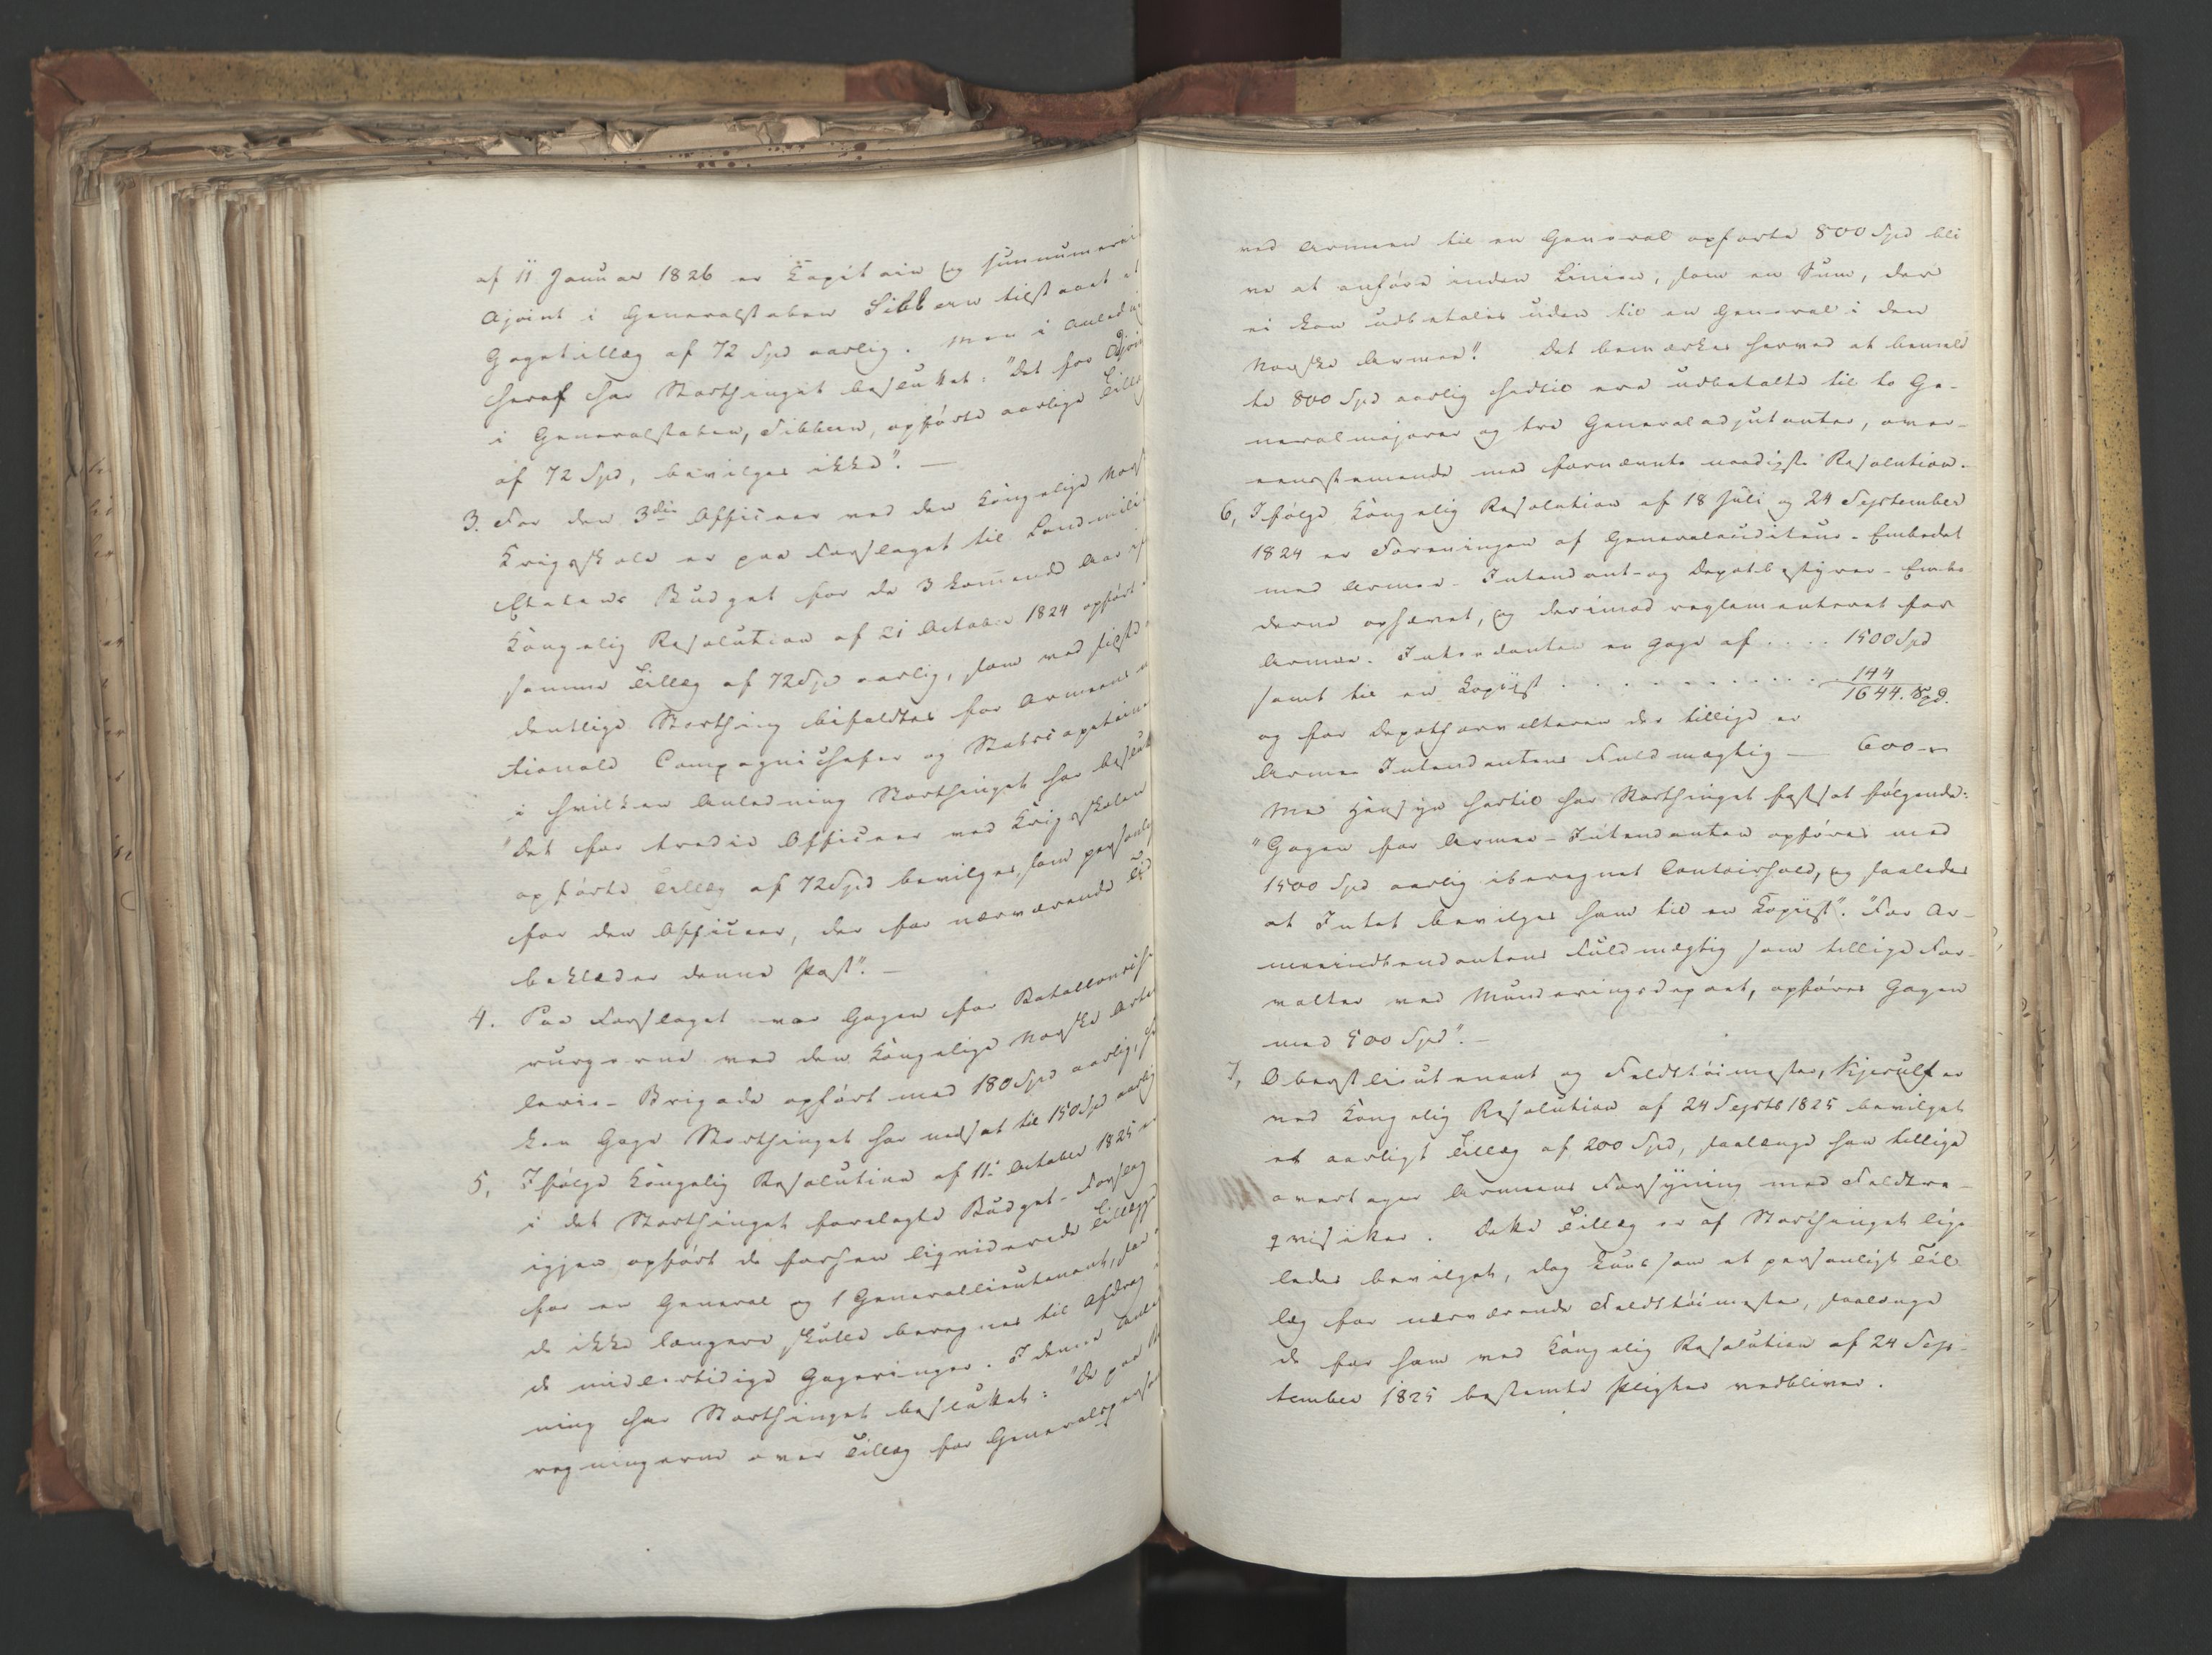 af 11 Januar 1826 er Capitain og surnumerai
Ajoint i Generalstaben Sibbern tilstaaet et
Gagetillæg af 72 Spd aarlig. Men i Anledni
heraf har Storthinget besluttet: "Det for Adjoin
i Generalstaben, Sibbern, opførte aarlige Tillæ
af 72 Spd, bevilges ikke". —
3. For den 3die Officeer ved den kongelige Norsk
Krigsskole er paa Forslaget til Landmili
Etatens Budget for de 3 kommende Aar ef
Kongelig Resolution af 21 October 1824 opført
samme Tillæg af 72 Spd aarlig, som ved sidste
dentlige Storthing bifaldtes for Armeens n
tionale Compagnichefer og Stabscapitaine
i hvilken Anledning Storthinget har beslut
"Det for tredie Officeer ved Krigsskolen
opførte Tillæg af 72 Spd bevilges, som personlig
for den Officeer, der for nærværende Tid
beklæder denne Post". —
4. Paa Forslaget var Gagen for Bataillonschi
rurgerne ved den kongelige Norske Artil
lerie-Brigade opført med 180 Spd aarlig, hvil
ken Gage Storthinget har nedsat til 150 Spd aarlig
5, Ifølge kongelig Resolution af 11 October 1825 er
i det Storthinget forelagte Budget-Forslag
igjen opført de forhen liqviderede Tillægge
for en General og 1 Generallieutenant, da
de ikke længere skulle beregnes til Afdrag i
de midlertidige Gageringer. I denne Anled
ning har Storthinget besluttet: "De paa Be
regningerne over Tillæg for Generalsperson
ved Armeen til en General opførte 800 Spd bli
ve at anføre inden Linien, som en Sum, der
ei kan udbetales uden til en General i den
Norske Armee". Det bemærkes herved at bemeld
te 800 Spd aarlig hidtil ere udbetalte til to Ge-
neralmajorer og tre Generaladjutanter, over-
eensstemmende med fornævnte naadigste Resolution.
6, Ifølge kongelig Resolution af 18 Juli og 24 September
1824 er Foreningen af Generalauditeur-Embedet
med Armee-Intendant- og Depotbestyrer-Embe
derne ophævet, og derimod reglementeret for
Armee-Intendanten en Gage af .... 1500 Spd
samt til en Kopiist . . . . . . . . . . 144
1644. Spd.
og for Depotforvalteren der tillige er
Armee Intendantens Fuldmægtig — 600 —
Med Hensyn hertil har Storthinget fastsat følgende:
"Gagen for Armee-Intendanten opføres med
1500 Spd aarlig iberegnet Contoirhold, og saaledes
at Intet bevilges ham til en Kopiist". "For Ar-
meeindtendantens Fuldmægtig som tillige For-
valter ved Munderingsdepoet, opføres Gagen
med 500 Spd". —
7, Oberstlieutenant og Feldttøimester, Kjerulf er
ved kongelig Resolution af 24 Septb 1825 bevilget
et aarligt Tillæg af 200 Spd, saalænge han tillige
overtager Armeens Forsyning med Feldtre-
qvisiter. Dette Tillæg er af Storthinget lige
ledes bevilget, dog kuns som et personligt Til
læg for nærværende Feldttøimester, saalænge
de for ham ved kongelig Resolution af 24 Sep-
tember 1825 bestemte Pligter vedbliver.